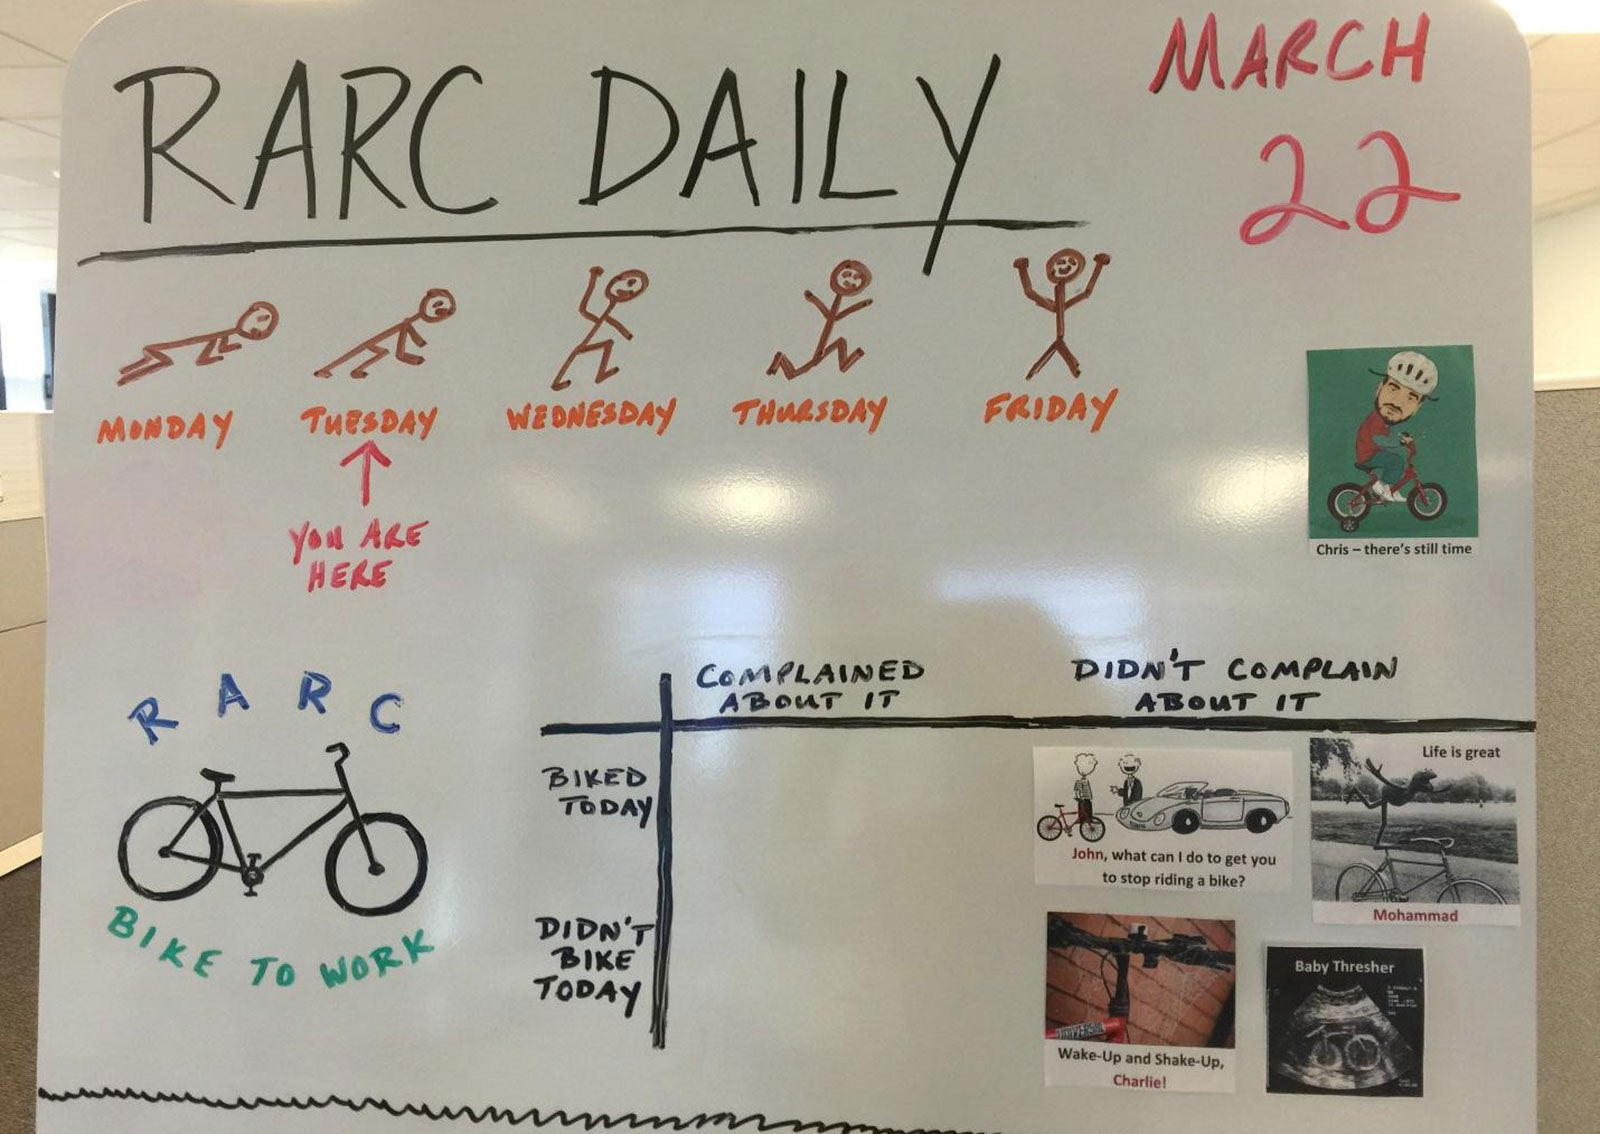 RARC DAILY
MARCH
22
MONDAY
TUESDAY
WEDNESDAY
THURSDAY
FRIDAY
YOU ARE
HERE
Chris – there's still time
R A R C
BIKE TO WORK
COMPLAINED
ABOUT IT
DIDN'T COMPLAIN
ABOUT IT
BIKED
TODAY
DIDN'T
BIKE
TODAY
John, what can I do to get you
to stop riding a bike?
Life is great
Mohammad
Wake-Up and Shake-Up,
Charlie!
Baby Thresher